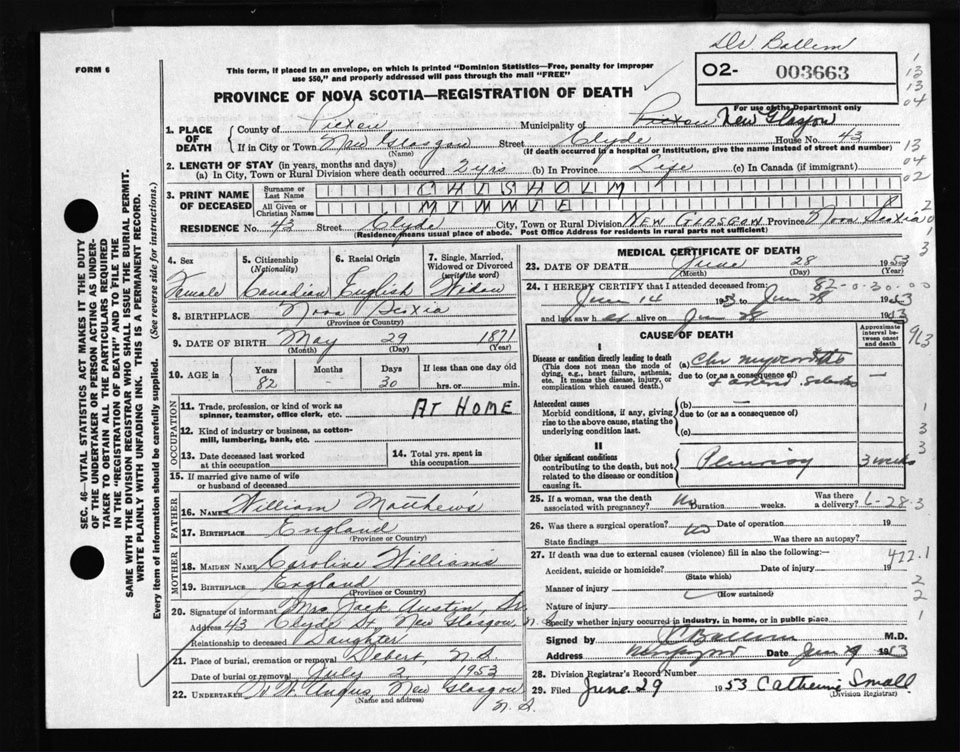 Dr Ballem
FORM 6
This form, if placed in an envelope, on which is printed "Dominion Statistics—Free, penalty for improper
use $50," and properly addressed will pass through the mail "FREE"
02- 003663
PROVINCE OF NOVA SCOTIA—REGISTRATION OF DEATH
For use of the Department only
1. PLACE OF DEATH
County of Pictou Municipality of Pictou New Glasgow
If in City or Town New Glasgow Street Clyde House No. 43
(Name) (If death occurred in a hospital or institution, give the name instead of street and number)
2. LENGTH OF STAY (in years, months and days)
(a) In City, Town or Rural Division where death occurred 2 yrs (b) In Province Life (c) In Canada (if immigrant)
3. PRINT NAME OF DECEASED
Surname or Last Name CHISHOLM
All Given or Christian Names MINNIE
RESIDENCE No. 43 Street Clyde City, Town or Rural Division NEW GLASGOW Province Nova Scotia
(Residence means usual place of abode. Post Office Address for residents in rural parts not sufficient)
4. Sex Female
5. Citizenship (Nationality) Canadian
6. Racial Origin English
7. Single, Married, Widowed or Divorced (write the word) Widow
8. BIRTHPLACE Nova Scotia
(Province or Country)
9. DATE OF BIRTH May 29 1871
(Month) (Day) (Year)
10. AGE in Years 82 Months - Days 30 If less than one day old
hrs. or min.
OCCUPATION
11. Trade, profession, or kind of work as
spinner, teamster, office clerk, etc. AT HOME
12. Kind of industry or business, as cotton-
mill, lumbering, bank, etc.
13. Date deceased last worked
at this occupation
14. Total yrs. spent in
this occupation
15. If married give name of wife
or husband of deceased
FATHER
16. NAME William Matthews
17. BIRTHPLACE England
(Province or Country)
MOTHER
18. MAIDEN NAME Caroline Williams
19. BIRTHPLACE England
(Province or Country)
20. Signature of informant Mrs Jack Austin, Sr.
Address 43 Clyde St. New Glasgow, N.S.
Relationship to deceased Daughter
21. Place of burial, cremation or removal Debert, N.S.
Date of burial or removal July 2 1953
22. UNDERTAKER H. W. Angus, New Glasgow
(Name and address) N.S.
MEDICAL CERTIFICATE OF DEATH
23. DATE OF DEATH June 28 1953
(Month) (Day) (Year)
82-0-30-00
24. I HEREBY CERTIFY that I attended deceased from:
June 14 1953 to June 28 1953
and last saw her alive on June 28 1953
CAUSE OF DEATH
Approximate interval between onset and death
I
Disease or condition directly leading to death
(This does not mean the mode of
dying, e.g., heart failure, asthenia,
etc. It means the disease, injury, or
complication which caused death.)
(a) Chr myocarditis
due to (or as a consequence of)
—
Antecedent causes
Morbid conditions, if any, giving
rise to the above cause, stating the
underlying condition last.
(b) —
due to (or as a consequence of)
(c)
II
Other significant conditions
contributing to the death, but not
related to the disease or condition
causing it.
Pleurisy 3 weeks
25. If a woman, was the death
associated with pregnancy? No Duration weeks. Was there
a delivery? 6-28-3
26. Was there a surgical operation? No Date of operation 19
State findings Was there an autopsy?
27. If death was due to external causes (violence) fill in also the following:
422.1
Accident, suicide or homicide? Date of injury 19
(State which)
Manner of injury
(How sustained)
Nature of injury
Specify whether injury occurred in industry, in home, or in public place
Signed by Ballem M.D.
Address Date June 1953
28. Division Registrar's Record Number
29. Filed June 29 1953 Catherine Small
(Division Registrar)
SEC. 46—VITAL STATISTICS ACT MAKES IT THE DUTY
OF THE UNDERTAKER OR PERSON ACTING AS UNDER-
TAKER TO OBTAIN ALL THE PARTICULARS REQUIRED
IN THE "REGISTRATION OF DEATH" AND TO FILE THE
SAME WITH THE DIVISION REGISTRAR WHO SHALL ISSUE THE BURIAL PERMIT.
WRITE PLAINLY WITH UNFADING INK. THIS IS A PERMANENT RECORD.
Every item of information should be carefully supplied. (See reverse side for instructions.)